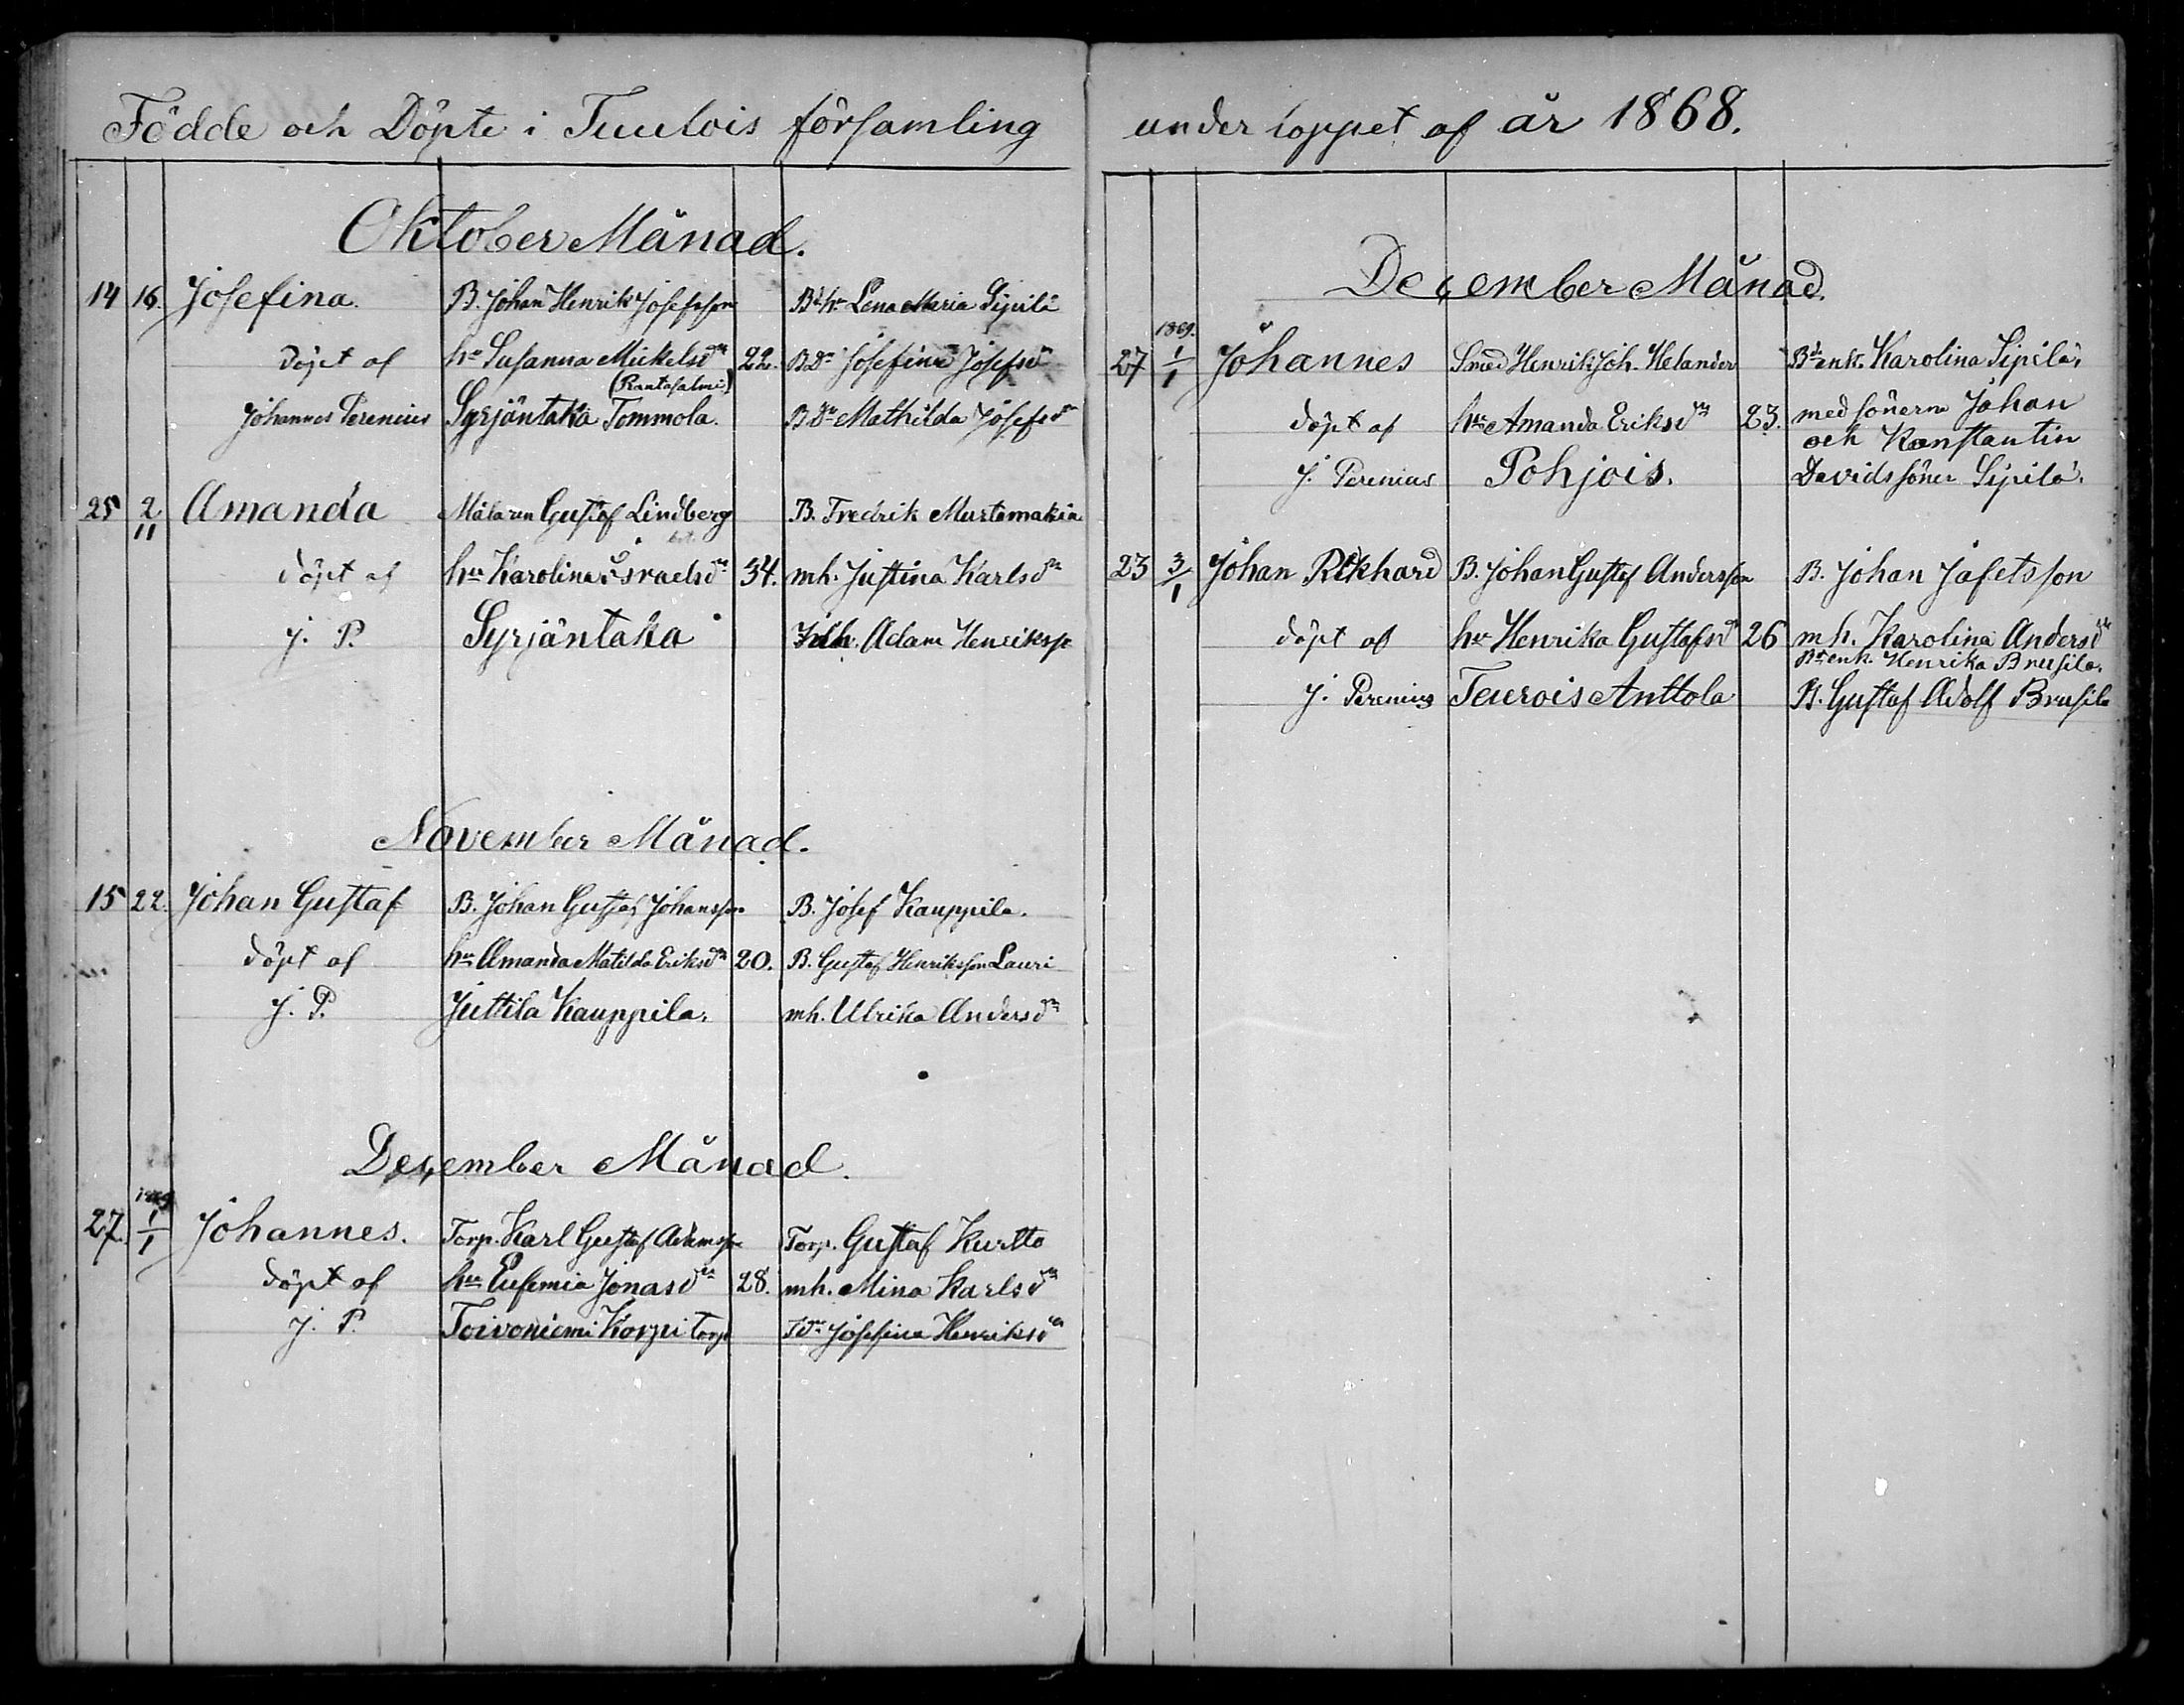 Födde och Döpte i Tuulois församling
Oktober Månad.
14 16. Josefina. B. Johan Henrik Josefsson Bd hu Lena Maria Sipilä
döpt af hu Susanna Mickelsdr 22. B Dr Josefina Josefsdr
(Rantasalmi)
Johannes Perenius Syrjäntaka Tommola. B Dr Mathilda Josefsdr
25 2/11 Amanda Målaren Gustaf Lindberg B. Fredrik
döpt af hu Karolina Israelsdr 34. mh. Justina Karlsdr
J. P. Syrjäntaka Adam Henrikss
November Månad.
15 22. Johan Gustaf B. Johan Gustaf Johansson B. Josef Kauppila.
döpt af hu Amanda Matilda Eriksdr 20. B. Gustaf Henriksson Lauri
J. P. Juttila Kauppila. mh. Ulrika Andersdr
December Månad.
1869
27. 1/1 Johannes. Torp. Karl Gustaf Adamss Torp. Gustaf Kurtto
döpt af hu Eufemia Jonasdr 28. mh. Mina Karlsdr
J. P. Toivoniemi Korpi torp Josefina Henriksdr
under loppet af år 1868.
December Månad.
1869.
27 1/1 Johannes Smed Henrik Joh. Helander Bd enk. Karolina Sipilä,
döpt af hu Amanda Eriksdr 23. med sönerne Johan
och Konstantin
J. Perenius Pohjois. Davidssöner Sipilä.
23 3/1 Johan Rikhard B. Johan Gustaf Andersson B. Johan Jafetsson
döpt af hu Henrika Gustafsdr 26 mh. Karolina Andersdr
Bd enk. Henrika Brusila.
J. Perenius Teurois Anttola B. Gustaf Adolf Brusila